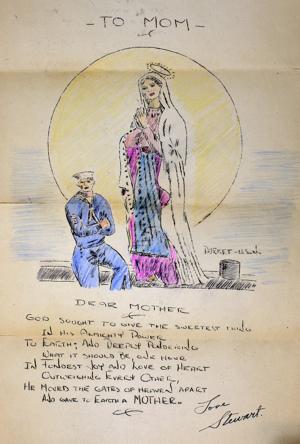 - TO MOM -
DEAR MOTHER
GOD SOUGHT TO GIVE THE SWEETEST THING
IN HIS ALMIGHTY POWER
TO EARTH; AND DEEPLY PONDERING
WHAT IT SHOULD BE, ONE HOUR
IN FONDEST JOY AND LOVE OF HEART
OUTWEIGHING EVERY OTHER,
HE MOVED THE GATES OF HEAVEN APART
AND GAVE TO EARTH A MOTHER..
Love
Stewart.